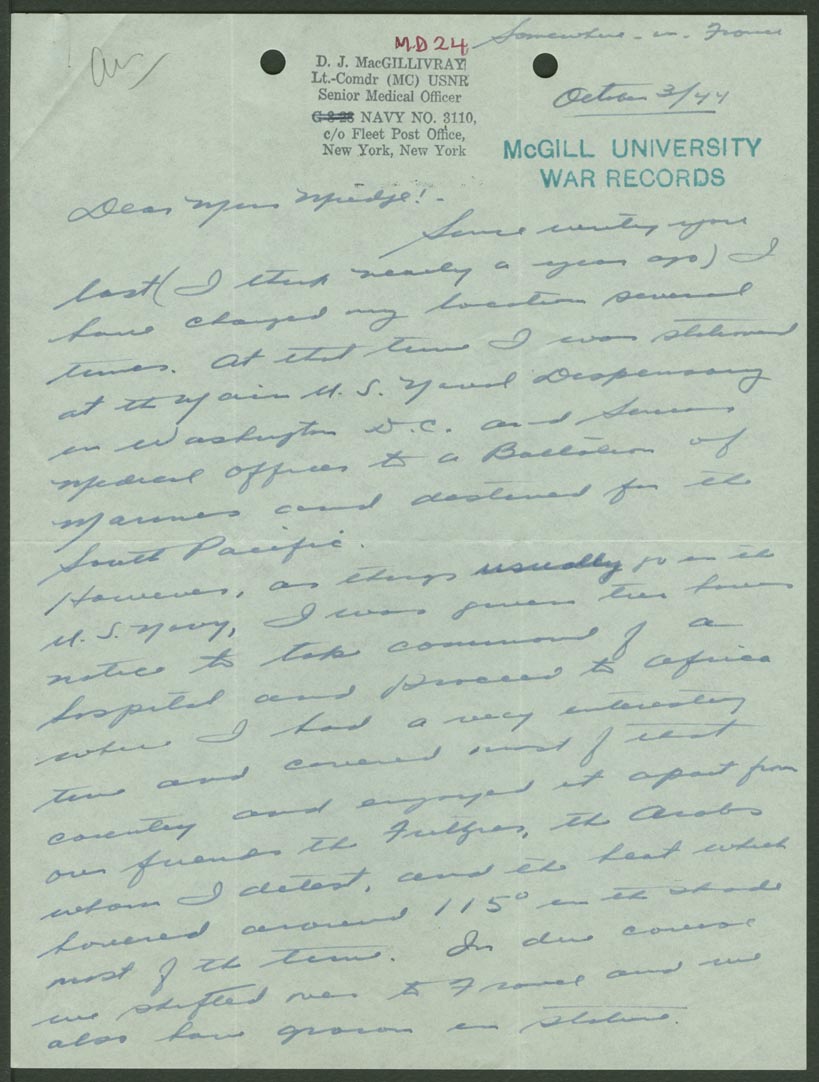 MD24
Somewhere - in - France
D. J. MacGILLIVRAY
Lt.-Comdr (MC) USNR
Senior Medical Officer
G-8-28 NAVY NO. 3110,
c/o Fleet Post Office,
New York, New York
October 3/44
McGILL UNIVERSITY
WAR RECORDS
Dear Miss Midge! -
Since writing you
last (I think nearly a year ago) I
have changed my location several
times. At that time I was stationed
at the Main U. S. Naval Dispensary
in Washington D.C. and Senior
Medical Officer to a Battalion of
Marines and destined for the
South Pacific.
However, as things usually go in the
U. S. Navy, I was given two hours
notice to take command of a
hospital and proceed to Africa
where I had a very interesting
time and covered most of that
country and enjoyed it apart from
our friends the the Arabs
whom I detest, and the heat which
hovered around 115° in the shade
most of the time. In due course
we shifted over to France and we
also have grown in stature.